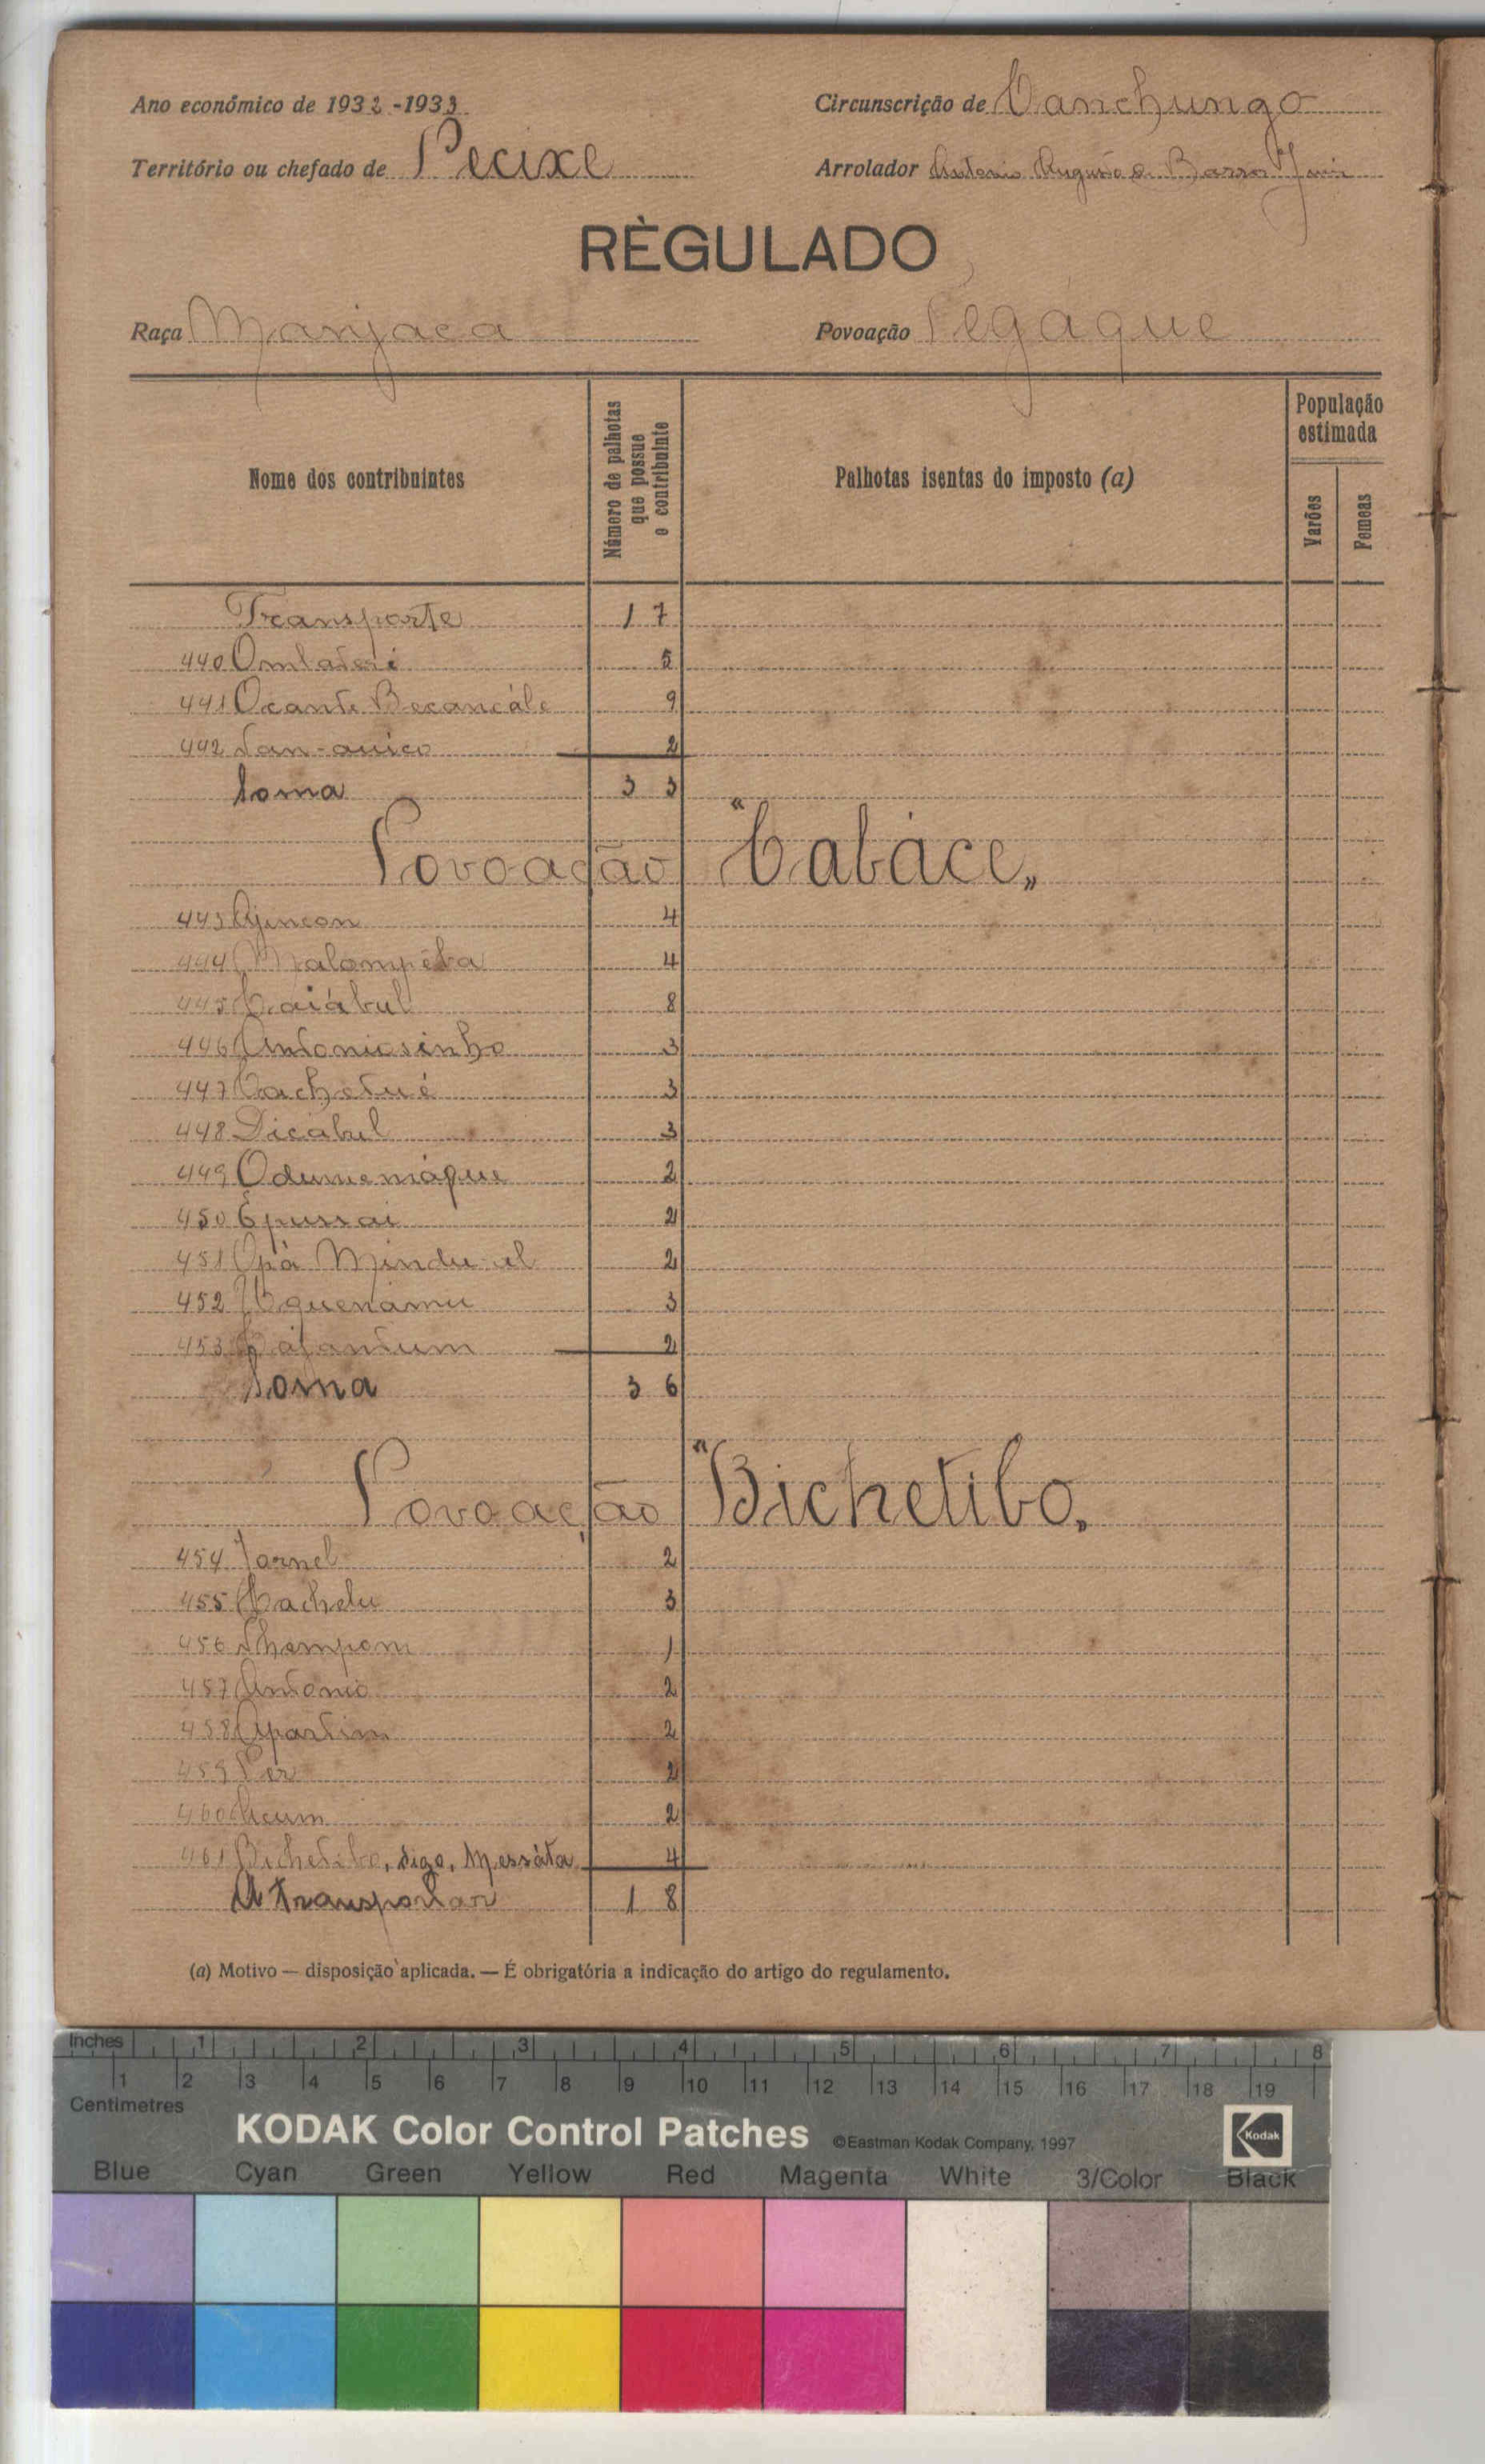 Ano económico de 1932-1933
Circunscrição de Canchungo
Território ou chefado de Pecixe
Arrolador Antonio Augusto de Barros Junior
RÈGULADO
Raça Manjaca
Povoação Pegáque
Nome dos contribuintes
Número de palhotas que possue o contribuinte
Palhotas isentas do imposto (a)
População estimada
Varões
Femeas
Transporte 17
440 Omlateré 5
441 Ocante Becancále 9
442 San-auico 2
Soma 33
Povoação "Cabáce„
443 Ajincon 4
444 Malompeba 4
445 Caiábul 8
446 Antoniosinho 3
447 Cachetué 3
448 Dicabul 3
449 Odumenáque 2
450 Epussai 2
451 Opá Mindu-al 2
452 Uquenámu 3
453 Cajantum 2
Soma 36
Povoação "Bichetibo„
454 Jornel 2
455 Cachelu 3
456 Thempom 1
457 Antonio 2
458 Apartim 2
459 Per 2
460 2
461 Bichetibo, digo, Messáta 4
A transportar 18
(a) Motivo — disposição aplicada. — É obrigatória a indicação do artigo do regulamento.
Inches 1 2 3 4 5 6 7 8
1 2 3 4 5 6 7 8 9 10 11 12 13 14 15 16 17 18 19
Centimetres
KODAK Color Control Patches ©Eastman Kodak Company, 1997 Kodak
Blue Cyan Green Yellow Red Magenta White 3/Color Black